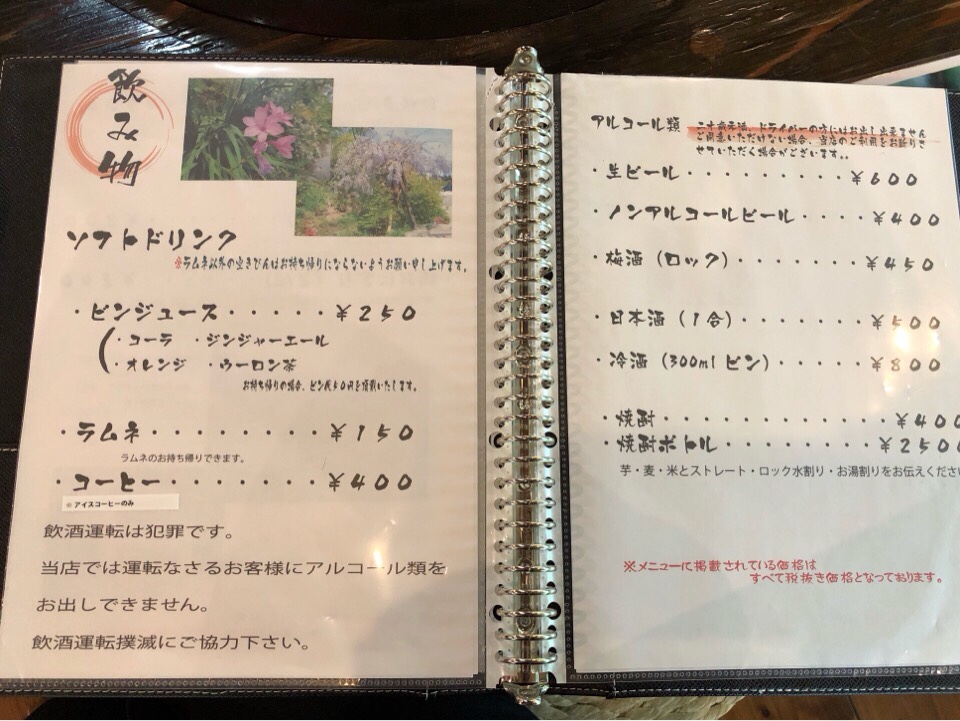 飲み物
ソフトドリンク
※ラムネ以外の空きびんはお持ち帰りにならないようお願い申し上げます。
・ビンジュース・・・・・¥250
・コーラ ・ジンジャーエール
・オレンジ ・ウーロン茶
お持ち帰りの場合、ビン代50円を頂戴いたします。
・ラムネ・・・・・・・・・¥150
ラムネのお持ち帰りできます。
・コーヒー・・・・・・・・¥400
※アイスコーヒーのみ
飲酒運転は犯罪です。
当店では運転なさるお客様にアルコール類を
お出しできません。
飲酒運転撲滅にご協力下さい。
アルコール類
ドライバーの方にはお出し出来ません
ご用意いただけない場合、当店のご利用をお断りさ
せていただく場合がございます。。
・生ビール・・・・・・・・・¥600
・ノンアルコールビール・・・・¥400
・梅酒（ロック）・・・・・・・¥450
・日本酒（1合）・・・・・・・¥500
・冷酒（300ml ビン）・・・・・¥800
・焼酎・・・・・・・・・・・¥400
・焼酎ボトル・・・・・・・・¥2500
芋・麦・米とストレート・ロック水割り・お湯割りをお伝えくださ
※メニューに掲載されている価格は
すべて税抜き価格となっております。